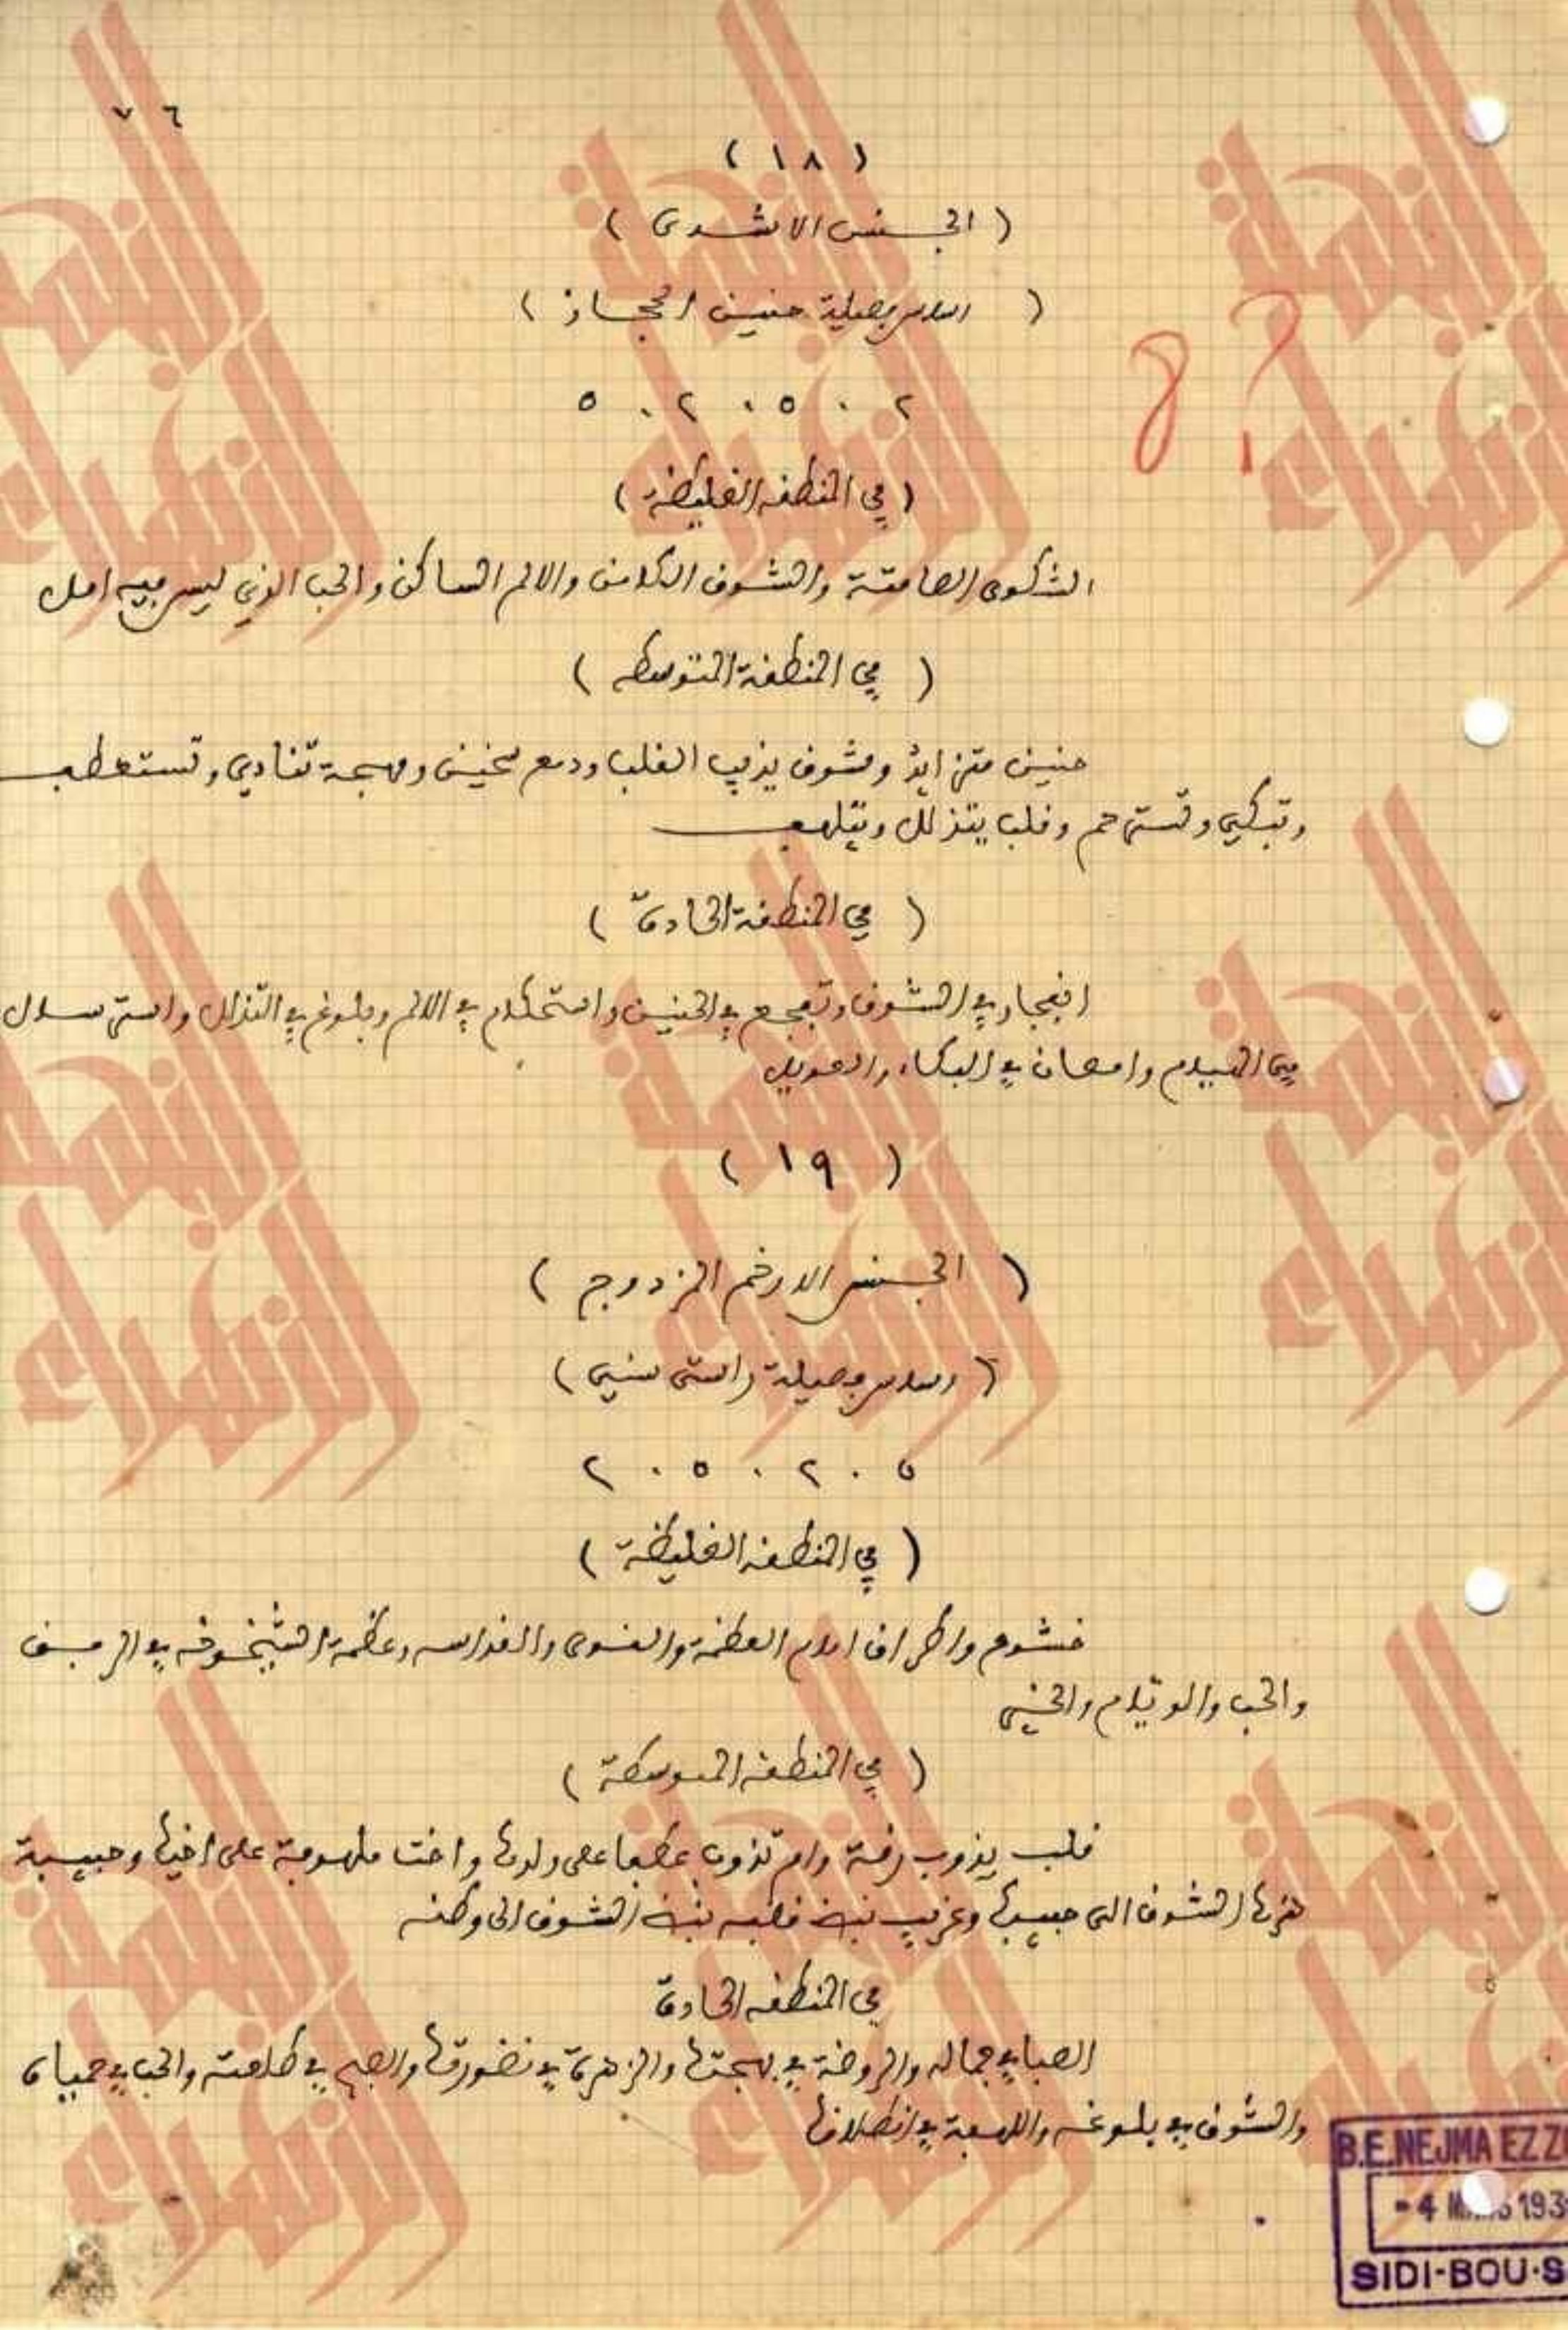 ٧٦
( ١٨ )
( الجنس الاشدى )
( اساس فصيلة حنين الحجاز )
٥ . ٢ . ٥ . ٢
( في المنطقه الغليظة )
الشكوى الصامتة والشوق الكامن والالم الساكن والحب الذي ليس فيه امل
( في المنطقة المتوسطه )
حنين متزايد وشوق يذيب القلب ودمع سخين ومهجة تنادي وتستعطف
وتبكي وتسترحم وقلب يتذلل ويتلهف
( في المنطقة الحادة )
انفجار في الشوق وتفجع في الحنين واستحكام في الالم وبلوغ في التذلل واسترسال
في الهيام وامعان في البكاء والعويل
( ١٩ )
( الجنس الارخم المزدوج )
( اساس فصيلة راست سني )
٢ . ٥ . ٢ . ٥
( في المنطقه الغليظة )
خشوع واطراق امام العظمة والقوى والقداسه وعظمة الشيخوخه في
والحب والوئام والحنين
( في المنطقه المتوسطة )
قلب يذوب رقة وام تذوب عطفا على ولدها واخت ملهوفة على اخيها وحبيبة
هزها الشوق الى حبيبها وغريب قلبه الشوق الى وطنه
في المنطقه الحادة
الصبا في جماله والروضة في بهجتها والزهرة في نضورتها والصبح في طلعته والحب في حمياه
والشوق في بلوغه واللهفة في انطلاقها
8?
النجمة الزهراء
B.E.NEJMA EZZ
- 4 193
SIDI-BOU-S